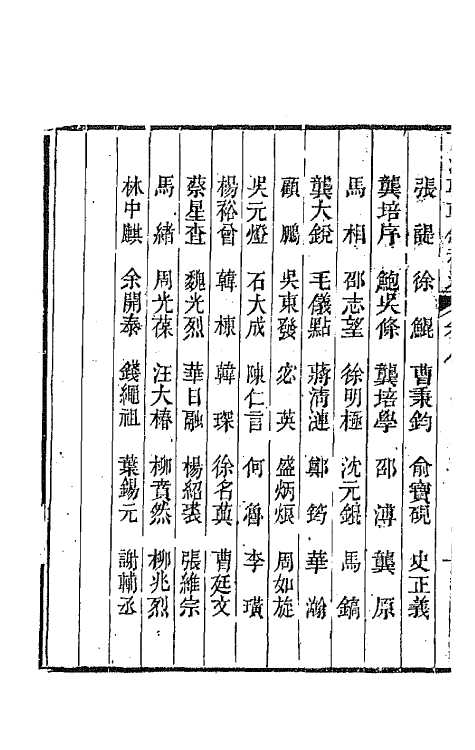 張　諟　徐　鯤　曹秉鈞　俞寶硯　史正義
龔培序　鮑吳條　龔培學　邵　溥　龔　原
馬　相　邵志望　徐明極　沈元錕　馬　鎬
龔大銳　毛儀點　蔣淸漣　鄭　筠　華　瀚
顧　鵬　吳東發　宓　英　盛炳烺　周如旋
吳元燈　石大成　陳仁言　何　魯　李　璜
楊裕曾　韓　棟　韓　琛　徐名英　曹廷文
蔡星查　魏光烈　華日融　楊紹裘　張維宗
馬　緒　周光葆　汪大椿　柳賁然　柳兆烈
林中麒　余開泰　錢繩祖　葉錫元　謝輔丞